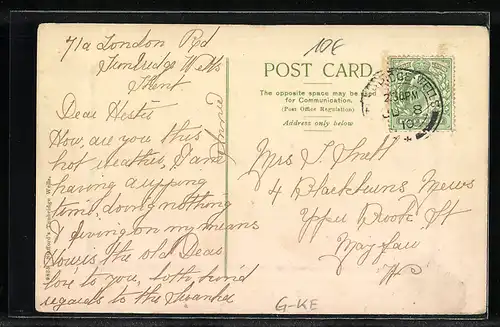 10€
71a London Rd
Tunbridge Wells
Kent
Dear Hester
How are you this
hot weather, I am
having a ripping
time, doing nothing
& living on my means
How's the old Deas
love to you, both kind
regards to the
Annie
8626. Stafford's, Tunbridge Wells.
POST CARD.
The opposite space may be used
for Communication.
(Post Office Regulation)
Address only below
TUNBRIDGE WELLS
2.30PM
Mrs J. Snell
4 Blackburns Mews
Upper Brook St
Mayfair
W
G-KE